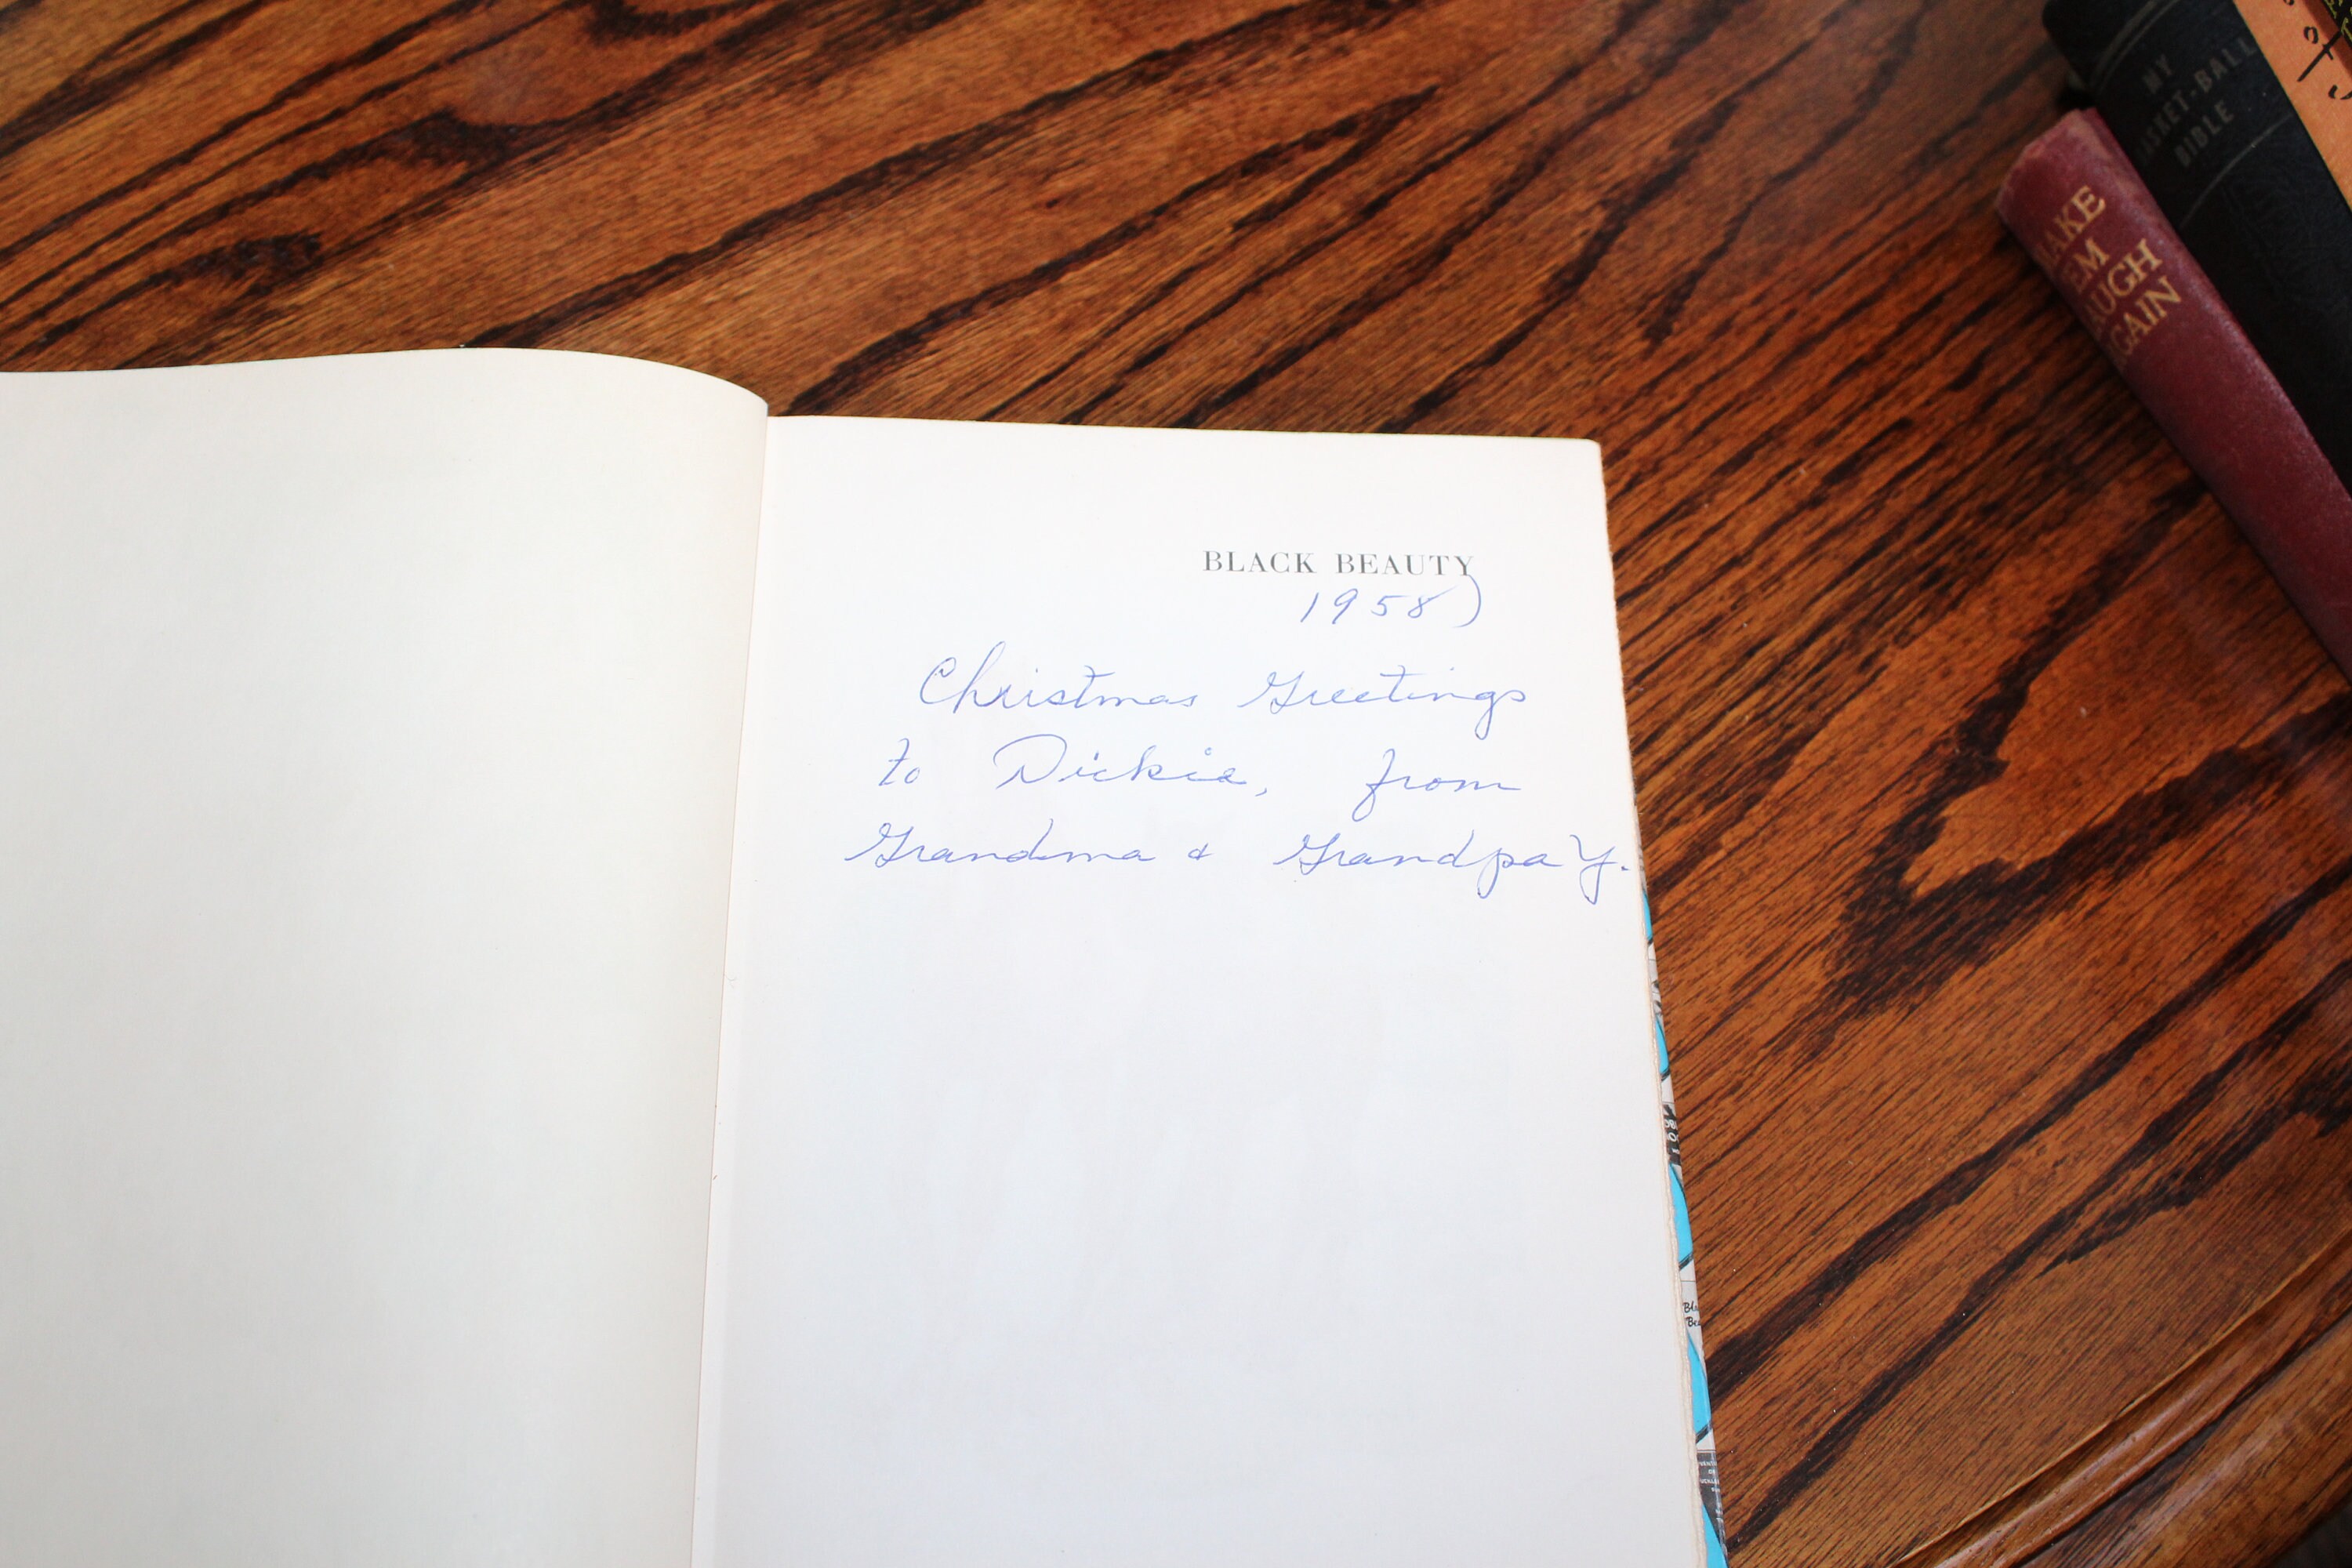 BLACK BEAUTY
1958)
Christmas Greetings
to Dickie, from
Grandma & Grandpa Y.
MY
BASKET-BALL
BIBLE
MAKE
EM
LAUGH
AGAIN
of